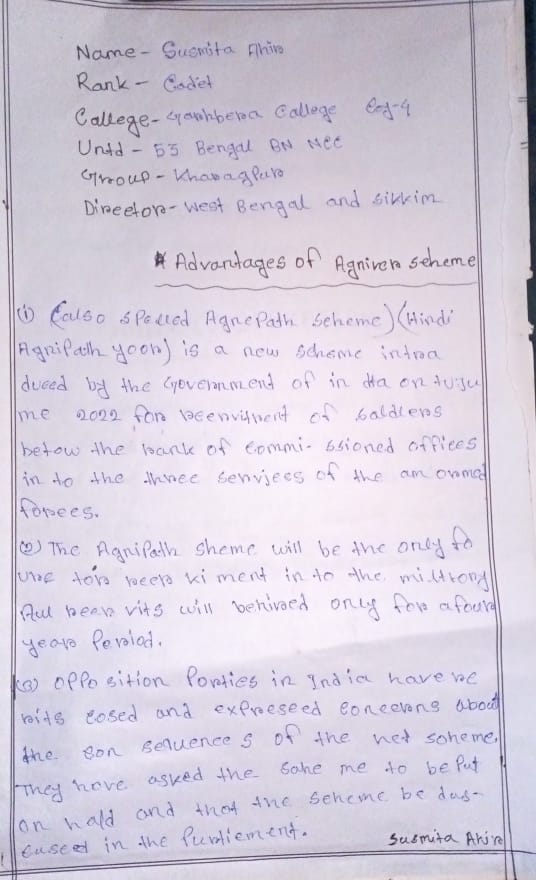 Name - Susmita Ahiro
Rank - Cadet
College - Garhbera College Coy-4
Untd - 53 Bengal BN NCC
Group - Kharagpuro
Director - West Bengal and sikkim
* Advantages of Agniver scheme
(i) (also spelled AgnePath Scheme) (Hindi
Agnipath yoon) is a new scheme intro
duced by the Government of in dia on
me 2022 for of soldiers
below the rank of commi- ssioned offices
in to the three of the am ormed
forces.
(2) The Agnipath Sheme will be the only fo
ki ment in to the
will only for a four
year Period.
(3) oppo sition Porties in India have
and expreseed about
the con of the net soheme.
They hove asked the Sahe me to be Put
on hald and that the Scheme be das-
cussed in the Purliement.
Susmita Ahiro